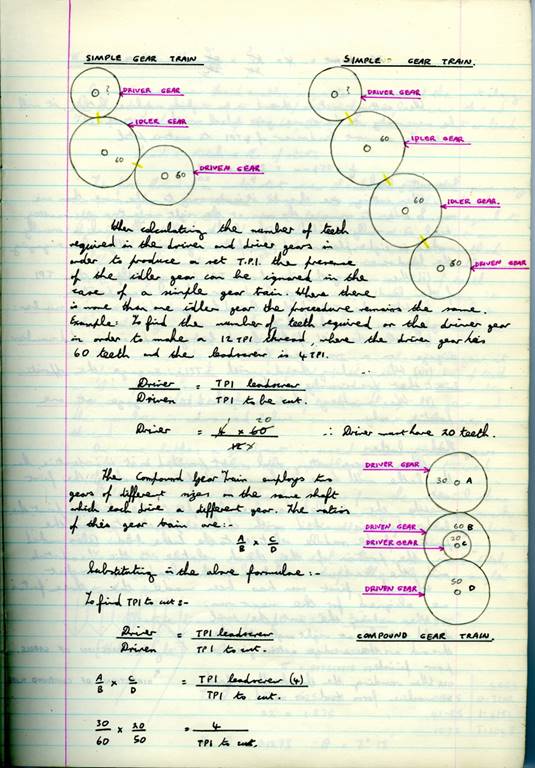 SIMPLE GEAR TRAIN
?
DRIVER GEAR
IDLER GEAR
60
DRIVEN GEAR
60
SIMPLE GEAR TRAIN.
?
DRIVER GEAR
60
IDLER GEAR
60
IDLER GEAR.
60
DRIVEN GEAR
When calculating the number of teeth
required in the driver and driver gears in
order to produce a set T.P.I. the presence
of the idler gear can be ignored in the
case of a simple gear train. Where there
is more than one idler gear the procedure remains the same.
Example: To find the number of teeth required on the driver gear
in order to make a 12 TPI thread, where the driven gear has
60 teeth and the leadscrew is 4 TPI.
Driver = TPI leadscrew
Driven TPI to be cut.
1 20
Driver = 4 x 60 ∴ Driver must have 20 teeth.
The Compound Gear Train employs to
gears of different sizes on the same shaft
which each drive a different gear. The ratios
of this gear train are:-
A x C
B D
DRIVER GEAR
30 A
DRIVEN GEAR
60 B
DRIVER GEAR
20 C
DRIVEN GEAR
50 D
COMPOUND GEAR TRAIN.
Substituting in the above formulae:-
To find TPI to cut:-
Driver = TPI leadscrew
Driven TPI to cut.
A x C = TPI leadscrew (4)
B D TPI to cut.
30 x 20 = 4
60 50 TPI to cut.